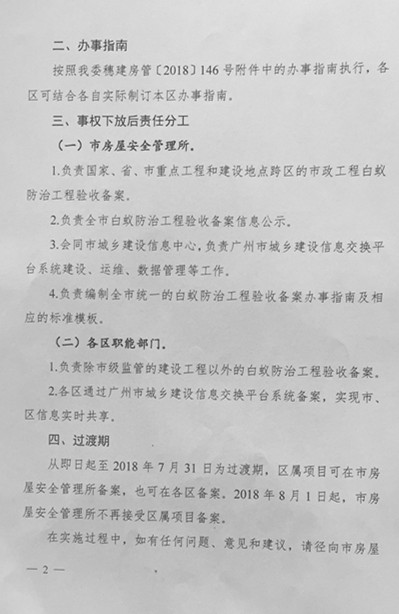 二、办事指南
按照我委穗建房管〔2018〕146号附件中的办事指南执行，各
区可结合各自实际制订本区办事指南。
三、事权下放后责任分工
（一）市房屋安全管理所。
1.负责国家、省、市重点工程和建设地点跨区的市政工程白蚁
防治工程验收备案。
2.负责全市白蚁防治工程验收备案信息公示。
3.会同市城乡建设信息中心,负责广州市城乡建设信息交换平
台系统建设、运维、数据管理等工作。
4.负责编制全市统一的白蚁防治工程验收备案办事指南及相
应的标准模板。
（二）各区职能部门。
1.负责除市级监管的建设工程以外的白蚁防治工程验收备案。
2.各区通过广州市城乡建设信息交换平台系统备案，实现市、
区信息实时共享。
四、过渡期
从即日起至2018年7月31日为过渡期，区属项目可在市房
屋安全管理所备案，也可在各区备案。2018年8月1日起，市房
屋安全管理所不再接受区属项目备案。
在实施过程中，如有任何问题、意见和建议，请径向市房屋
— 2 —